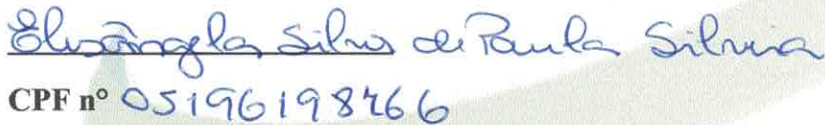 Elisângela Silva de Paula Silvia
CPF nº 05196198766